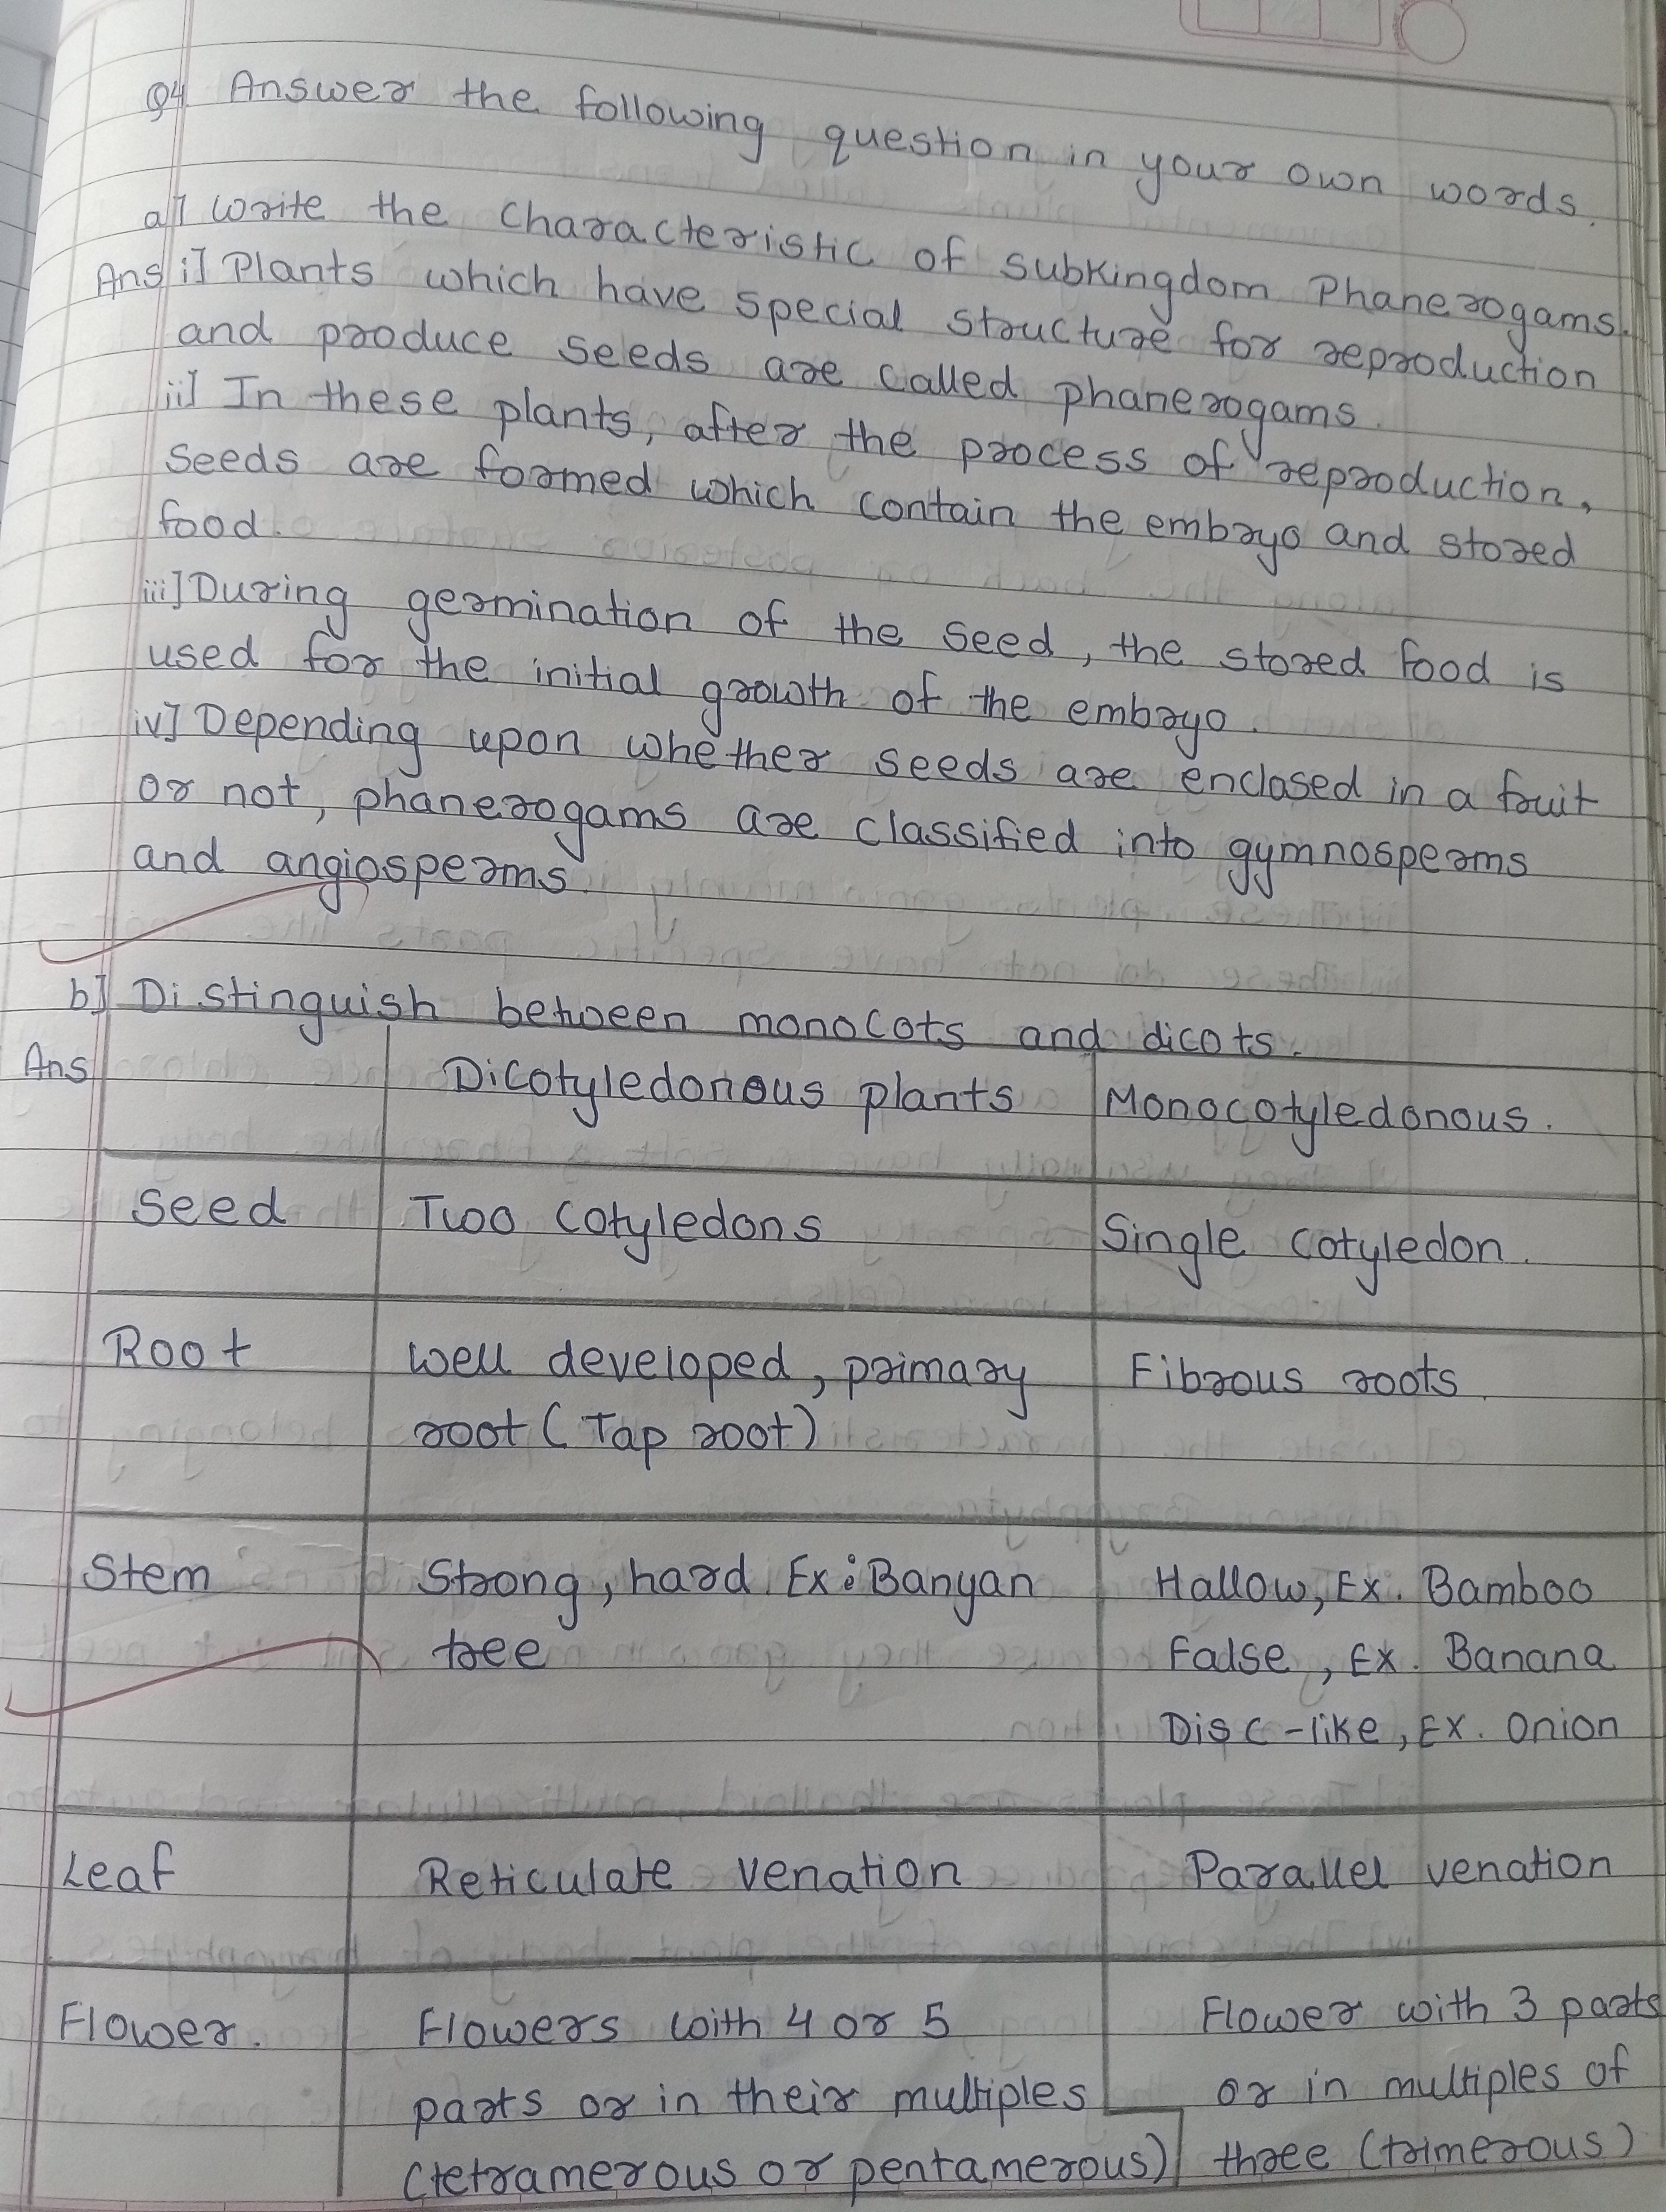 Q4 Answer the following question in your own words.
a] Write the characteristic of subkingdom Phanerogams.
Ans i] Plants which have special structure for reproduction
and produce seeds are called phanerogams.
ii] In these plants, after the process of reproduction,
seeds are formed which contain the embryo and stored
food.
iii] During germination of the seed, the stored food is
used for the initial growth of the embryo.
iv] Depending upon whether seeds are enclosed in a fruit
or not, phanerogams are classified into gymnosperms
and angiosperms.
b] Distinguish between monocots and dicots.
Ans Dicotyledonous plants Monocotyledonous.
Seed Two cotyledons Single cotyledon.
Root Well developed, primary Fibrous roots.
root (Tap root)
Stem Strong, hard. Ex: Banyan Hallow, Ex. Bamboo
tree False, Ex. Banana
Disc-like, Ex. Onion
Leaf Reticulate venation Parallel venation
Flower. Flowers with 4 or 5 Flower with 3 parts
parts or in their multiples or in multiples of
(tetramerous or pentamerous) three (trimerous)